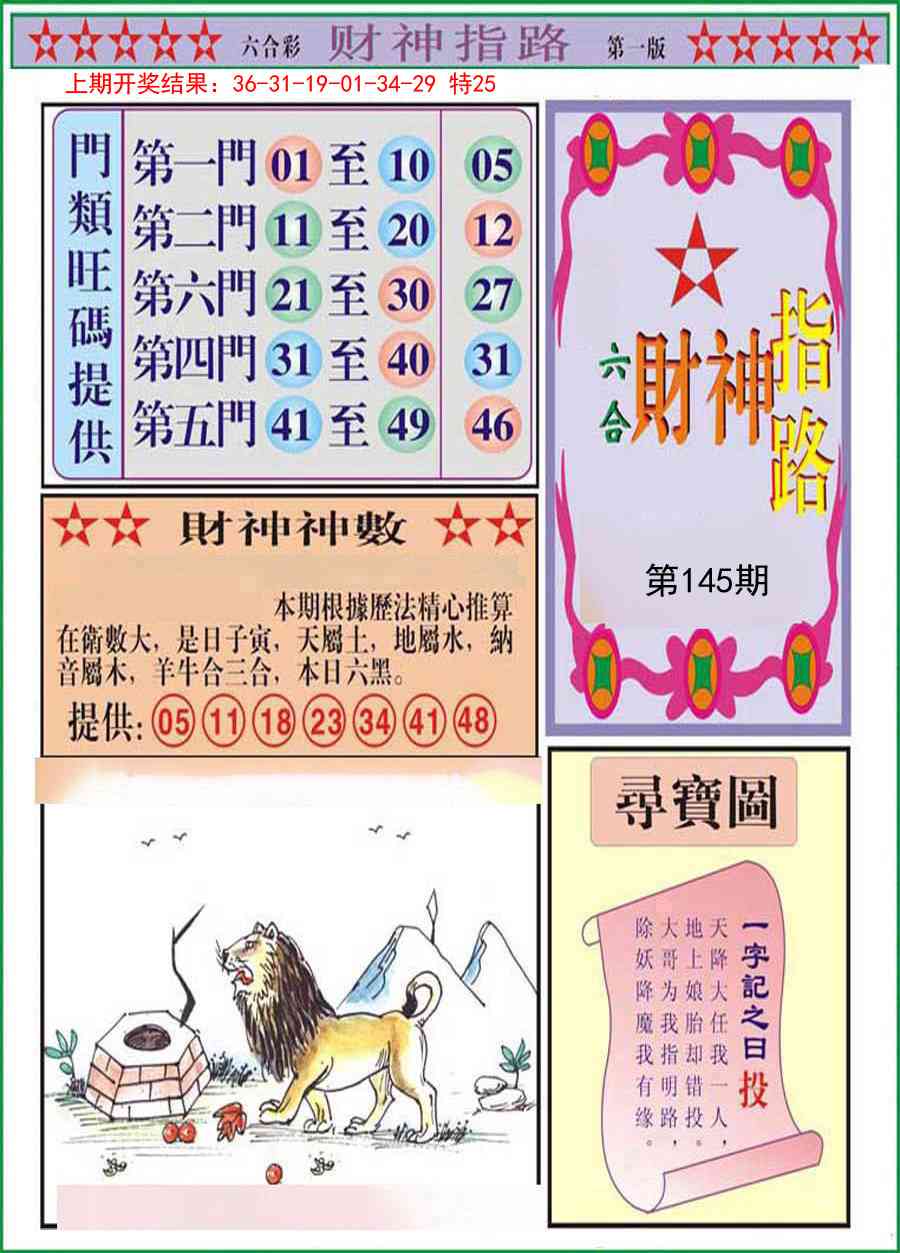 六合彩 财神指路 第一版
上期开奖结果：36-31-19-01-34-29 特25
門類旺碼提供
第一門 01 至 10 05
第二門 11 至 20 12
第六門 21 至 30 27
第四門 31 至 40 31
第五門 41 至 49 46
六合
財神
指路
第145期
財神神數
本期根據歷法精心推算
在衛數大，是日子寅，天屬土，地屬水，納
音屬木，羊牛合三合，本日六黑。
提供: 05 11 18 23 34 41 48
尋寶圖
一字記之曰 投
天降大任我一人，
地上娘胎却错投。
大哥为我指明路，
除妖降魔我有缘。